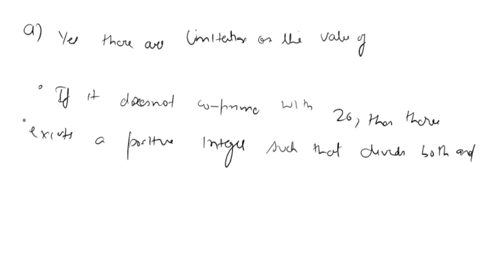 a) Yes there are limitation on the value of
• If it doesnot co-prime with 26, then there
• exists a positive integer such that divides both and